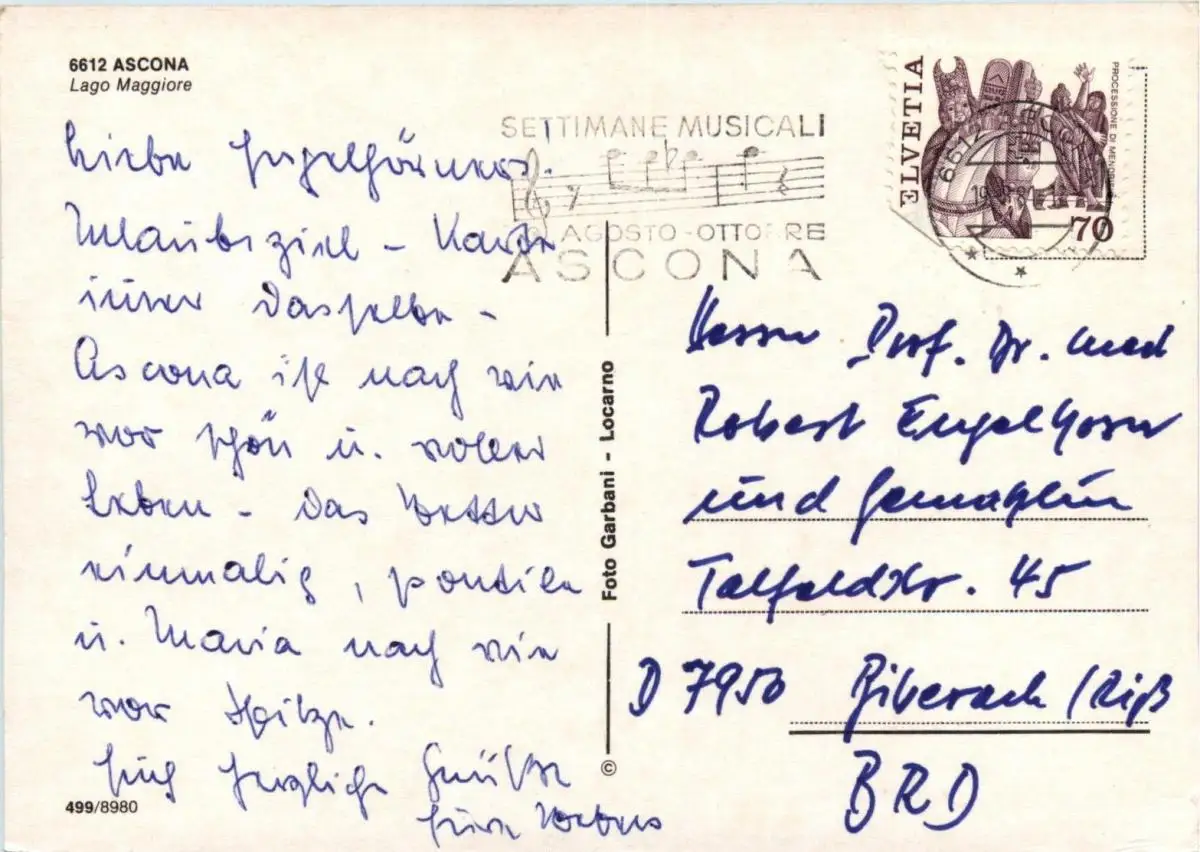 6612 ASCONA
Lago Maggiore
Liebe Engelhörners.
Urlaubsziel - Karte
immer dasselbe -
Ascona ist nach wie
vor schön u. voller
Leben - das Wetter
einmalig,
u. Maria nach wie
vor Spitze.
Euch herzliche Grüße
Eure Webers
499/8980
Foto Garbani - Locarno
©
SETTIMANE MUSICALI
AGOSTO - OTTOBRE
ASCONA
HELVETIA
PROCESSIONE DI MENDRISIO
70
6612 ASCONA
Herrn Prof. Dr. med
Robert Engelhorn
und Gemahlin
Talfeldstr. 45
D 7950 Biberach/Riß
BRD